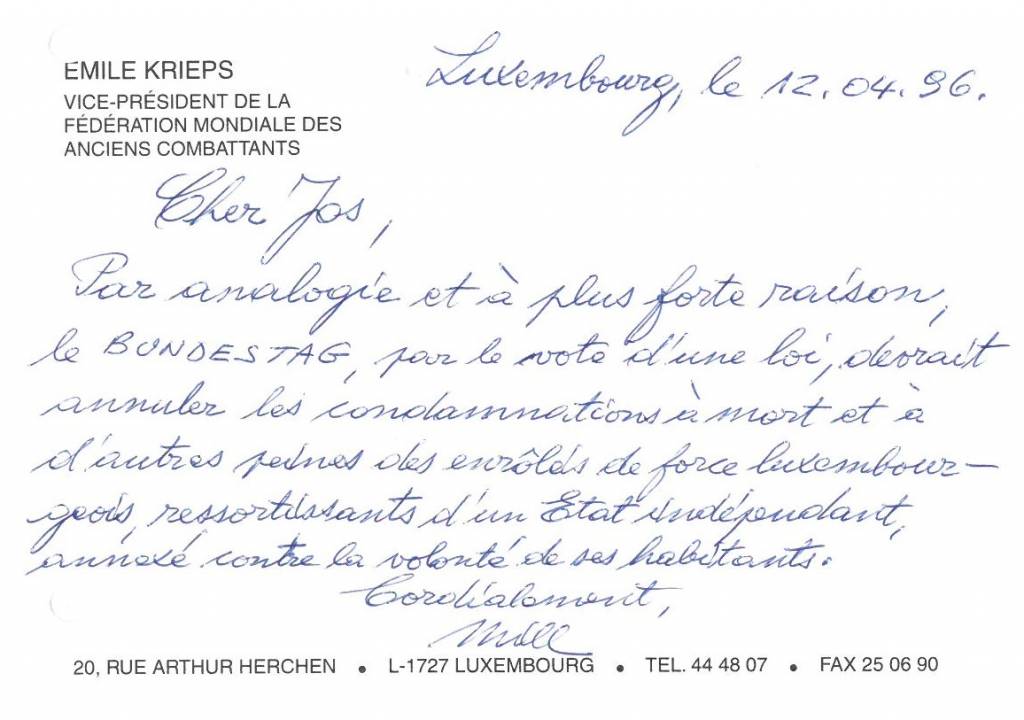 EMILE KRIEPS
VICE-PRÉSIDENT DE LA
FÉDÉRATION MONDIALE DES
ANCIENS COMBATTANTS
Luxembourg, le 12.04.96.
Cher Jos,
Par analogie et à plus forte raison,
le BUNDESTAG, par le vote d'une loi, devrait
annuler les condamnations à mort et à
d'autres peines des enrôlés de force luxembour-
geois, ressortissants d'un Etat indépendant,
annexé contre la volonté de ses habitants.
Cordialement,
Mill
20, RUE ARTHUR HERCHEN • L-1727 LUXEMBOURG • TEL. 44 48 07 • FAX 25 06 90